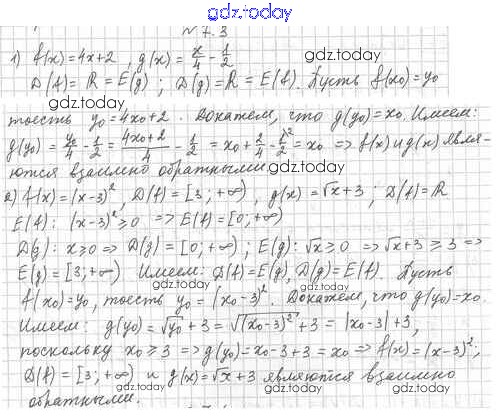 gdz.today
№ 7.3
1) f(x)=4x+2, g(x)=x/4-1/2
gdz.today gdz.today
D(f)=R=E(g); D(g)=R=E(f). Пусть f(x₀)=y₀
gdz.today
тоесть y₀=4x₀+2. Докажем, что g(y₀)=x₀. Имеем:
gdz.today
g(y₀)=y₀/4-1/2=(4x₀+2)/4-1/2=x₀+2/4-1/2=x₀ => f(x) и g(x) явля-
ются взаимно обратными.
gdz.today
2) f(x)=(x-3)², D(f)=[3;+∞), g(x)=√x+3; D(f)=R
gdz.today
E(f): (x-3)²≥0 => E(f)=[0;+∞)
gdz.today
D(g): x≥0 => D(g)=[0;+∞); E(g): √x≥0 => √x+3≥3 =>
gdz.today
E(g)=[3;+∞) Имеем: D(f)=E(g), D(g)=E(f). Пусть
gdz.today
f(x₀)=y₀, тоесть y₀=(x₀-3)². Докажем, что g(y₀)=x₀.
Имеем: g(y₀)=√y₀+3=√(x₀-3)²+3=|x₀-3|+3,
gdz.today
поскольку x₀≥3 => g(y₀)=x₀-3+3=x₀ => f(x)=(x-3)²;
gdz.today
D(f)=[3;+∞) и g(x)=√x+3 являются взаимно
gdz.today gdz.today
обратными.